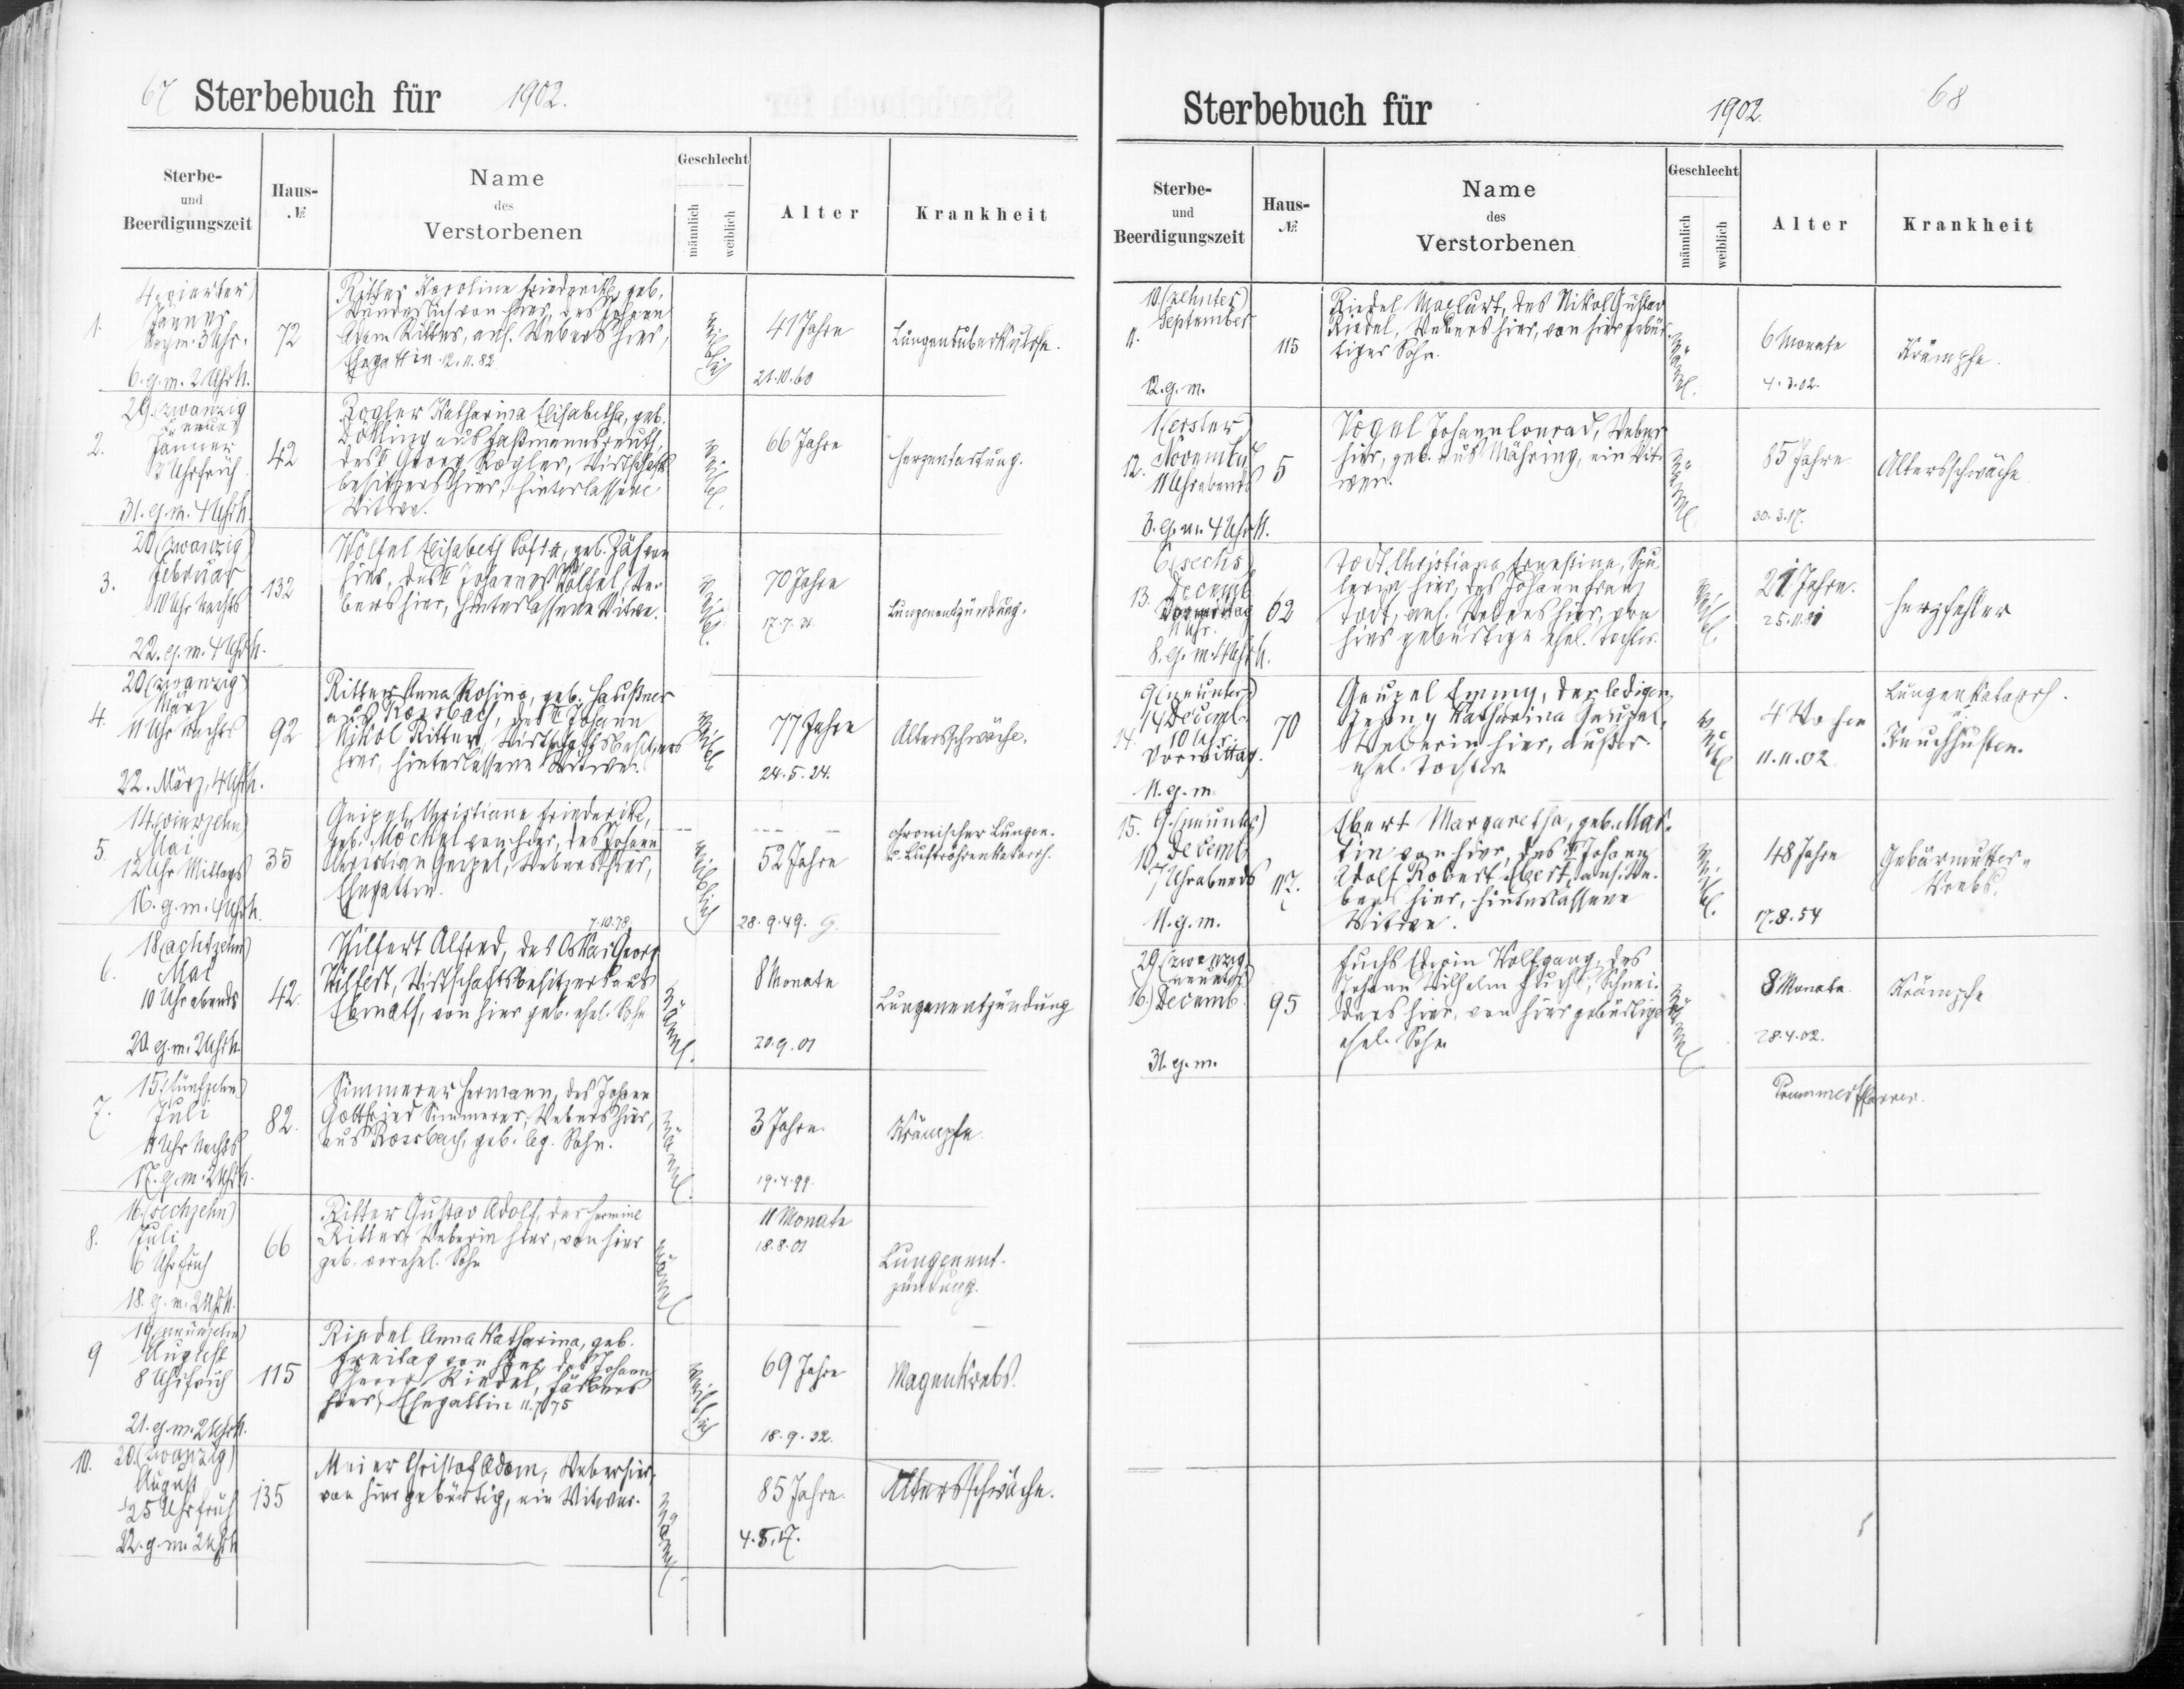 67 Sterbebuch für 1902.
Sterbe-
und
Beerdigungszeit
Haus-
№
Name
des
Verstorbenen
Geschlecht
männlich
weiblich
Alter
Krankheit
1.
4. (vierter)
Jänner
Nachm. 3 Uhr.
6. g. m. 2 Uhr N.
72
Ritter Karoline Friederike, geb.
von hier, des Johann
Adam Ritter, ans. Webers hier,
Ehegattin. 12.11.82
weiblich
41 Jahre
21.10.60
Lungentuberkulose.
2.
29. (zwanzig
neun)
Jänner
Uhr früh
31. g. m. 4 Uhr N.
42
Rogler Katharina Elisabetha, geb.
Dölling aus Faßmannsreuth,
des † Georg Rogler, Wirtschafts-
besitzers hier, hinterlassene
Witwe.
weibl.
66 Jahre
Herzentartung.
3.
20 (zwanzig)
Februar
10 Uhr Nachts
22. g. m. 4 Uhr N.
132
Wölfel Elisabeth geb.
hier, des † Johannes Wölfel, We-
bers hier, hinterlassene Witwe.
weibl.
70 Jahre
17.7.31.
Lungenentzündung.
4.
20 (zwanzig)
März
11 Uhr Nachts
22. März, 4 Uhr N.
92
Ritter Anna Rosina, geb. Haußner
aus Rossbach, des † Johann
Nikol Ritter, Wirtschaftsbesitzers
hier, hinterlassene Witwe.
weibl.
77 Jahre
24.5.24.
Altersschwäche.
5.
14. (vierzehn)
Mai
12 Uhr Mittags
16. g. m. 4 Uhr N.
35
Geipel Christiane Friederike,
geb. Mockel von hier, des Johann
Christian Geipel, Webers hier,
Ehegattin.
7.10.78.
weiblich
52 Jahre
28.9.49. G.
chronischer Lungen-
u. Luftröhrenkatarrh.
6.
18 (achtzehn)
Mai
10 Uhr abends
20. g. m. 2 Uhr N.
42.
Hilfert Alfred, des Oskar Georg
Hilfert, Wirtschaftsbesitzers aus
von hier geb. ehel. Sohn
männl.
8 Monate
20.9.01
Lungenentzündung
7.
15. (fünfzehn)
Juli
11 Uhr Nachts
17. g. m. 2 Uhr N.
82.
Simmerer Hermann, des Johann
Gottfried Simmerer, Webers hier,
aus Rossbach, geb. leg. Sohn.
männl.
3 Jahre.
19.4.99.
Krämpfe
8.
16 (sechzehn)
Juli
6 Uhr früh
18. g. m. 2 Uhr N.
66
Ritter Gustav Adolf, der Hermine
Ritter, Weberin hier, von hier
geb. vorehel. Sohn
männl.
11 Monate
18.8.01
Lungenent-
zündung.
9
19 (neunzehn)
August
8 Uhr früh
21. g. m. 2 Uhr N.
115
Riedel Anna Katharina, geb.
Freitag von hier, des Johann
Riedel, Färbers
hier, Ehegattin 11.7.75
weiblich
69 Jahre
18.9.32.
Magenkrebs.
10.
20. (zwanzig)
August
½5 Uhr früh
22. g. m. 2 Uhr N.
135
Meier Christof Adam, Weber hier,
von hier gebürtig, ein Witwer.
männl.
85 Jahre.
4.5.17.
Altersschwäche.
Sterbebuch für 1902. 68
Sterbe-
und
Beerdigungszeit
Haus-
№
Name
des
Verstorbenen
Geschlecht
männlich
weiblich
Alter
Krankheit
11.
10. (zehnter)
September
12. g. m.
115
Riedel Max Curt, des Nikol Gustav
Riedel, Webers hier, von hier gebür-
tiger Sohn.
männl.
6 Monate
4.3.02.
Krämpfe.
12.
1 (erster)
November
11 Uhr abends
3. g. m. 4 Uhr N.
5
Vogel Johann Conrad, Weber
hier, geb. aus Mähring, ein Wit-
wer.
männl.
85 Jahre
30.3.17.
Altersschwäche
13.
6 (sechs)
Decemb.
Vormittag
11 Uhr.
8. g. m. 4 Uhr N.
62
Todt Christiana Ernestina, Spu-
lerin hier, des Johann Franz
Todt, ans. Webers hier, von
hier gebürtige ehel. Tochter.
weibl.
21 Jahre.
25.11.81
Herzfehler
14.
9 (neunter)
Decemb.
10 Uhr
Vormittag.
11. g. m.
70
Geupel Emmy, der ledigen
Katharina Geupel,
Weberin hier, außer-
ehel. Tochter
weibl.
4 Wochen
11.11.02
Lungenkatarrh.
u.
Keuchhusten.
15.
9. (neunter)
Decemb.
7 Uhr abends
11. g. m.
117.
Ebert Margaretha, geb. Mar-
tin von hier, des † Johann
Adolf Robert Ebert, ans. We-
bers hier, hinterlassene
Witwe.
weibl.
48 Jahre
17.8.54
Gebärmutter-
krebs.
16.)
29. (zwanzig
neunter)
Decemb.
31. g. m.
95
Fuchs Edwin Wolfgang, des
Johann Wilhelm Fuchs, Schnei-
ders hier, von hier gebürtiger
ehel. Sohn
männl.
8 Monate.
28.4.02.
Krämpfe
Pfarrer.